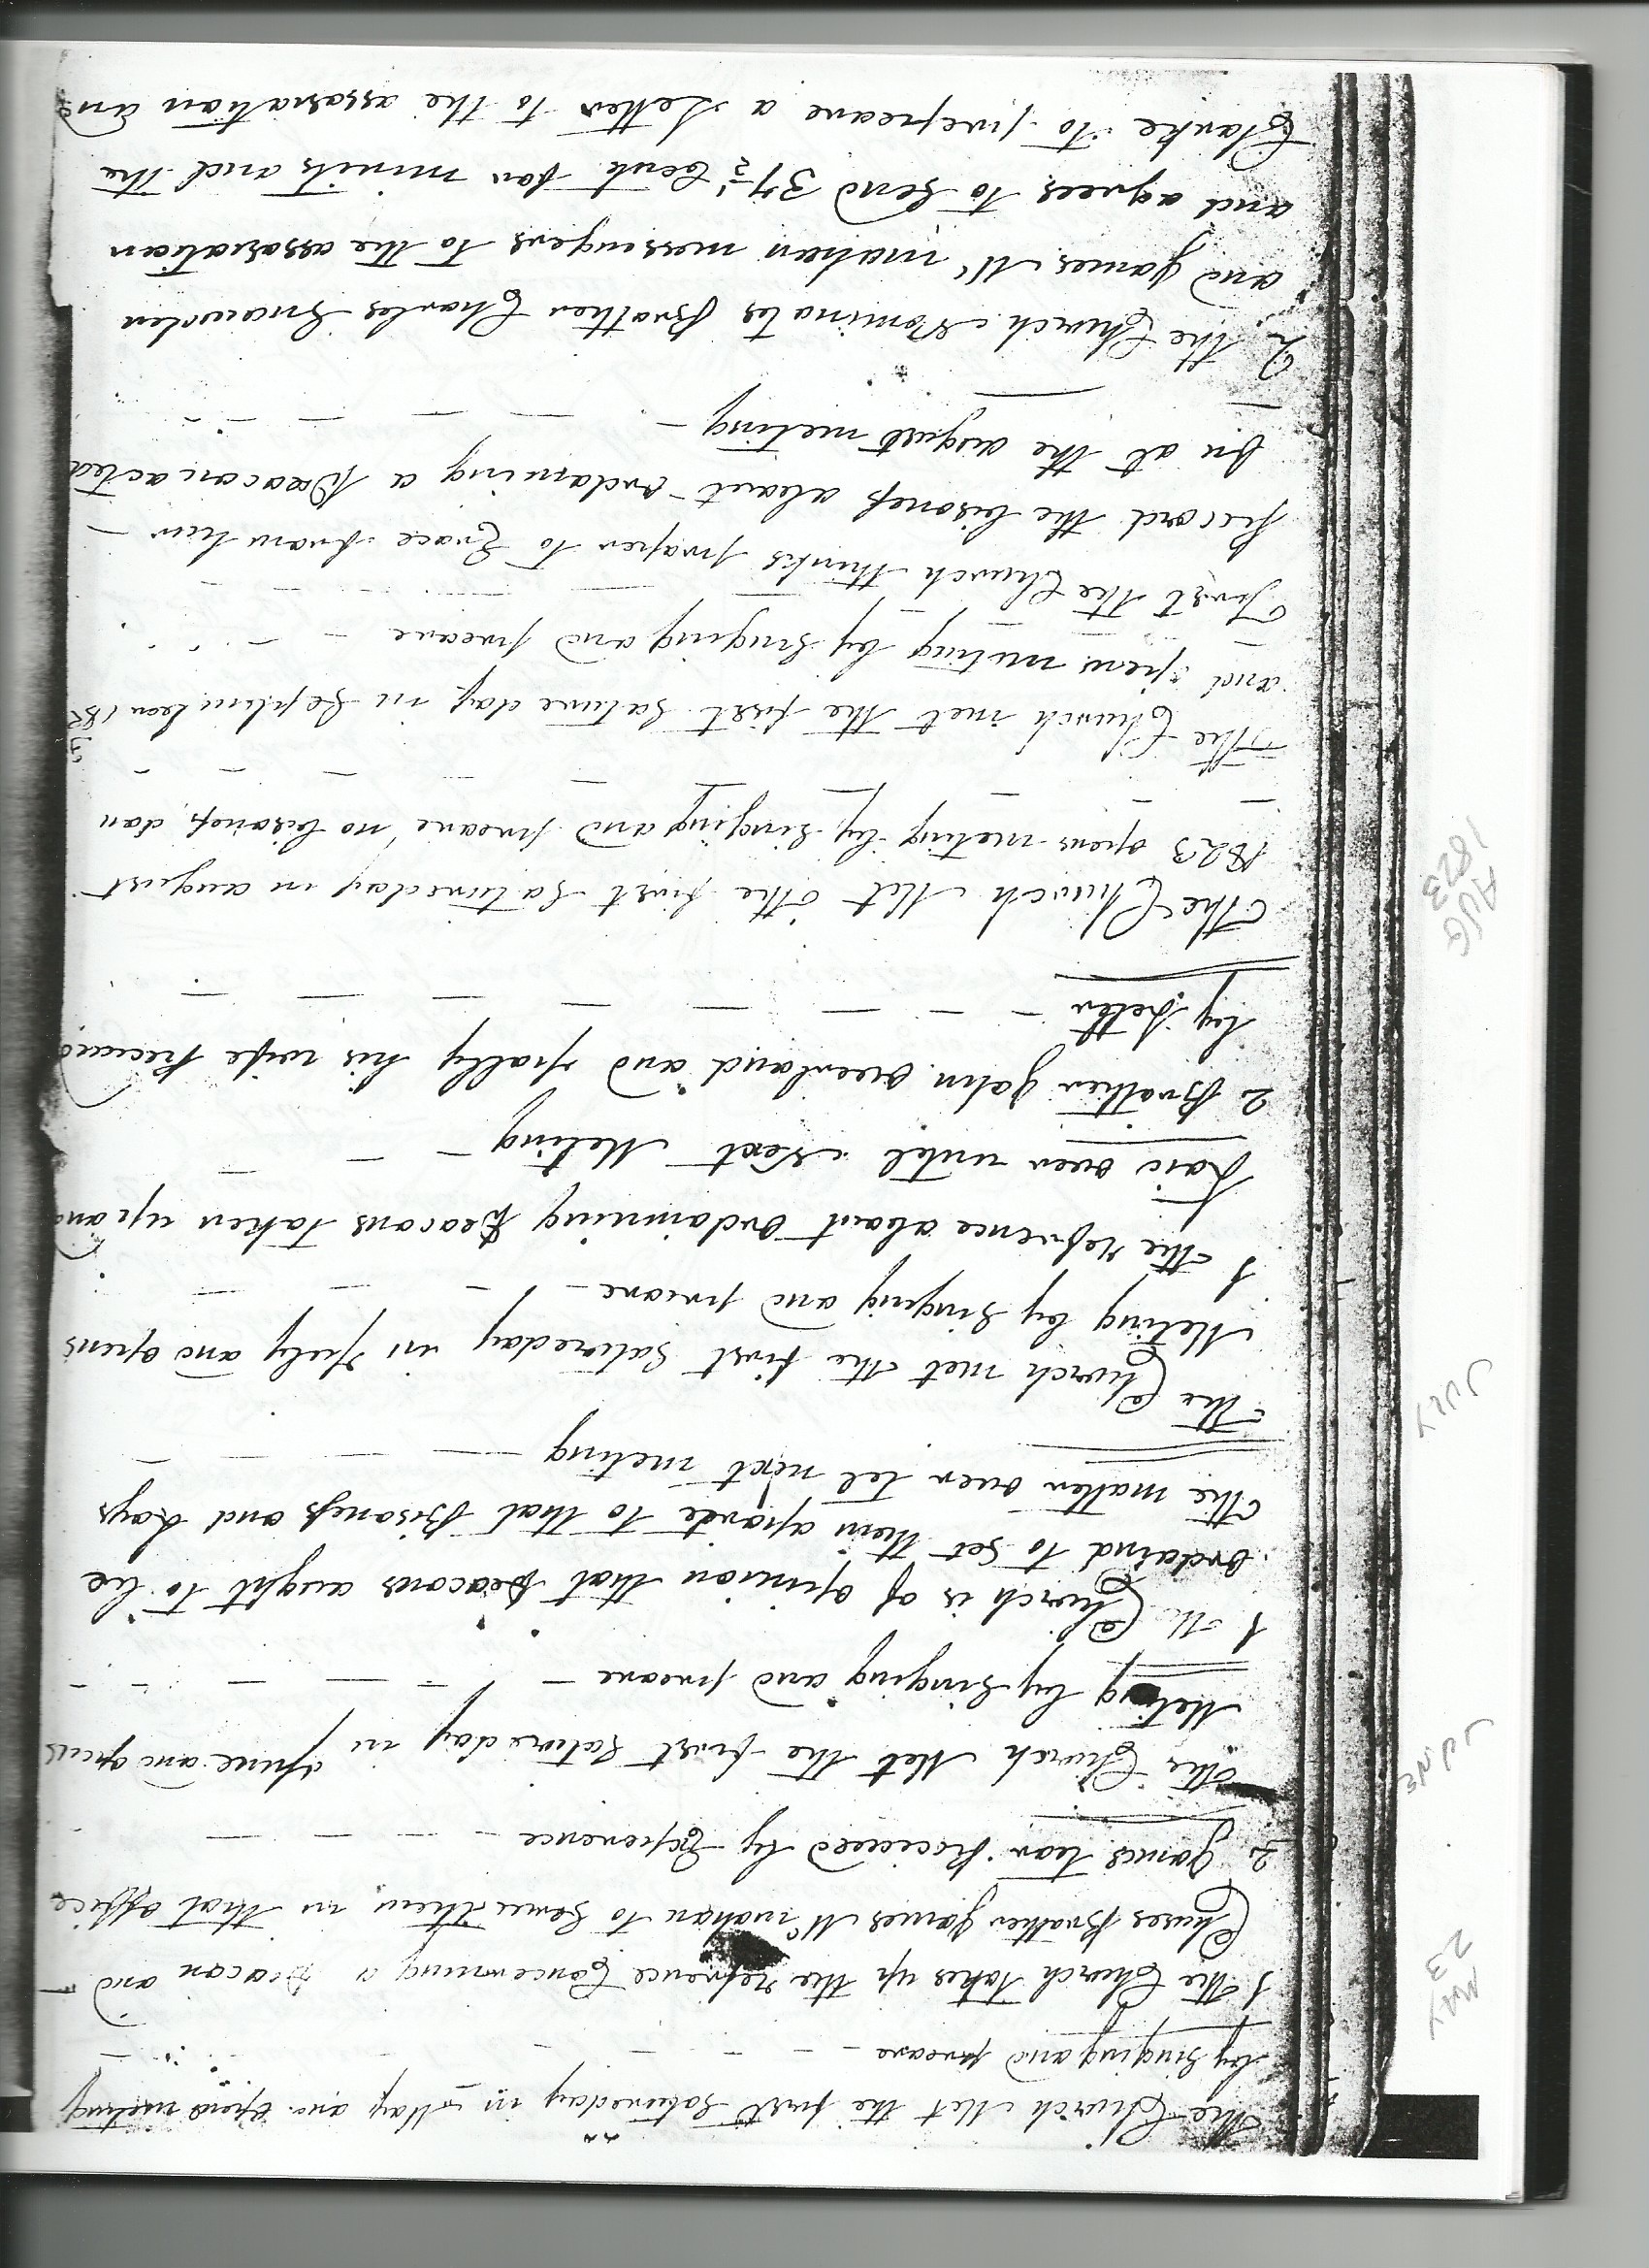 The Church Met the first Satureday in May and opens meeting
by Singing and preare
MAY
23
1 the Church takes up the refrence Concerning a Deacon and
Chuses Brother James McMahan to Serve them in that office
2 James tear Recieved by Exprence
The Church Met the first Satureday in June and opens
JUNE
Meting by Singing and preare
1 the Church is of opinion that Deacons aught to be
ordaind to Set them aparte to that Bisaness and Lays
the matter over tel next meting
The Church met the first Satureday in July and opens
JULY
Meting by Singing and preare
1 the refrence about Ordaining Deacons taken up and
Laid over untel Next Meting
2 Brother John Overland and Pally his wife Recieved
by Letter
The Church Met the first Satureday in august
AUG
1823
1823 opens meting by Singing and preare no bisaness don
The Church met the first Satureday in September 1823
and opens meting by Singing and preare
First the Church thinks proper to
Record the bisness about ordaning a Deacon acted
On at the august meeting
2 the Church Nominates Brother Charles Snawden
and James McMahan mesengers to the assosation
and agrees to Send 37½ Cent for minits and the
Clarke to prepeare a Letter to the assosation and